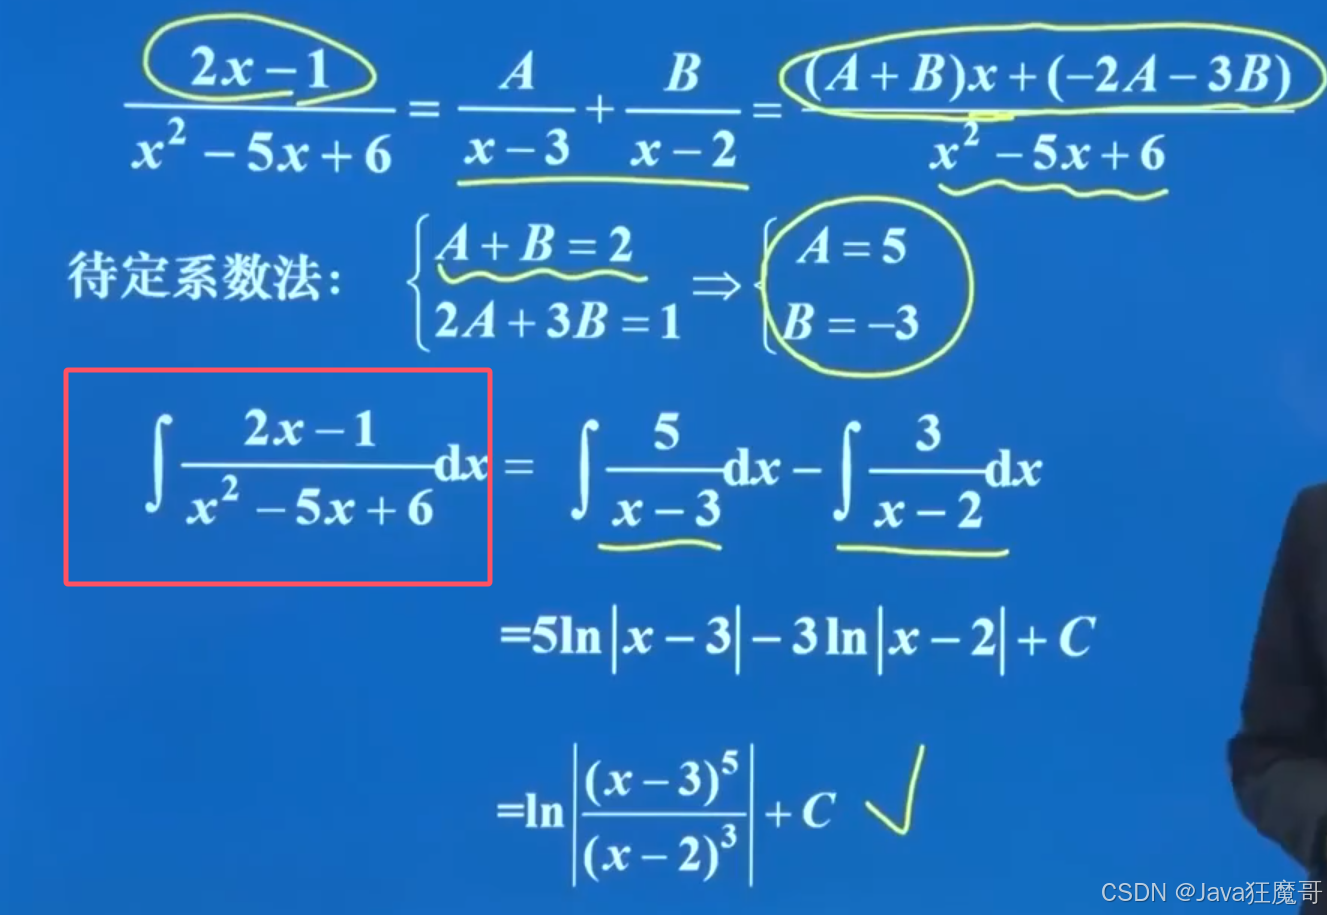 (2x−1)/(x²−5x+6) = A/(x−3) + B/(x−2) = ((A+B)x+(−2A−3B))/(x²−5x+6)
待定系数法: { A+B=2 ⇒ { A=5
2A+3B=1 B=−3
∫ (2x−1)/(x²−5x+6) dx = ∫ 5/(x−3) dx − ∫ 3/(x−2) dx
=5ln|x−3|−3ln|x−2|+C
=ln|(x−3)⁵/(x−2)³|+C
CSDN @Java狂魔哥